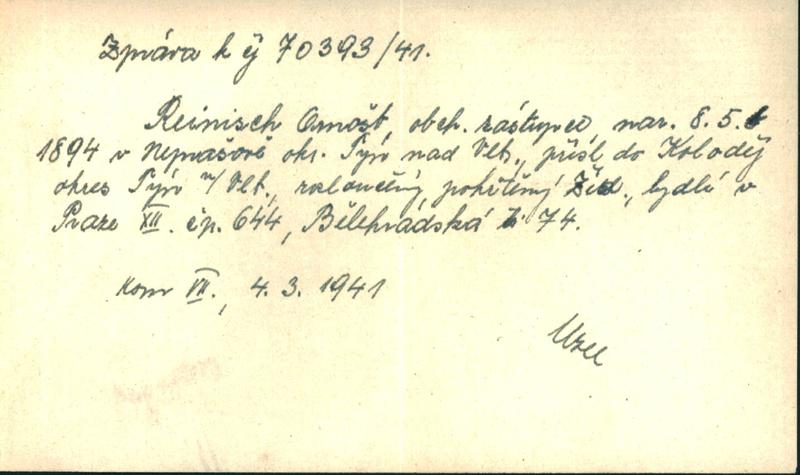 Zpráva k čj 70393/41.
Reinisch Arnošt, obch. zástupce, nar. 8.5.
1894 v Nepvašově okr. Týn nad Vlt., přísl. do Koloděj
okres Týn n/Vlt., rozloučený pokřtěný Žid., bydlí v
Praze XII. čp. 644, Bělehradská 74.
Kom VII., 4.3. 1941